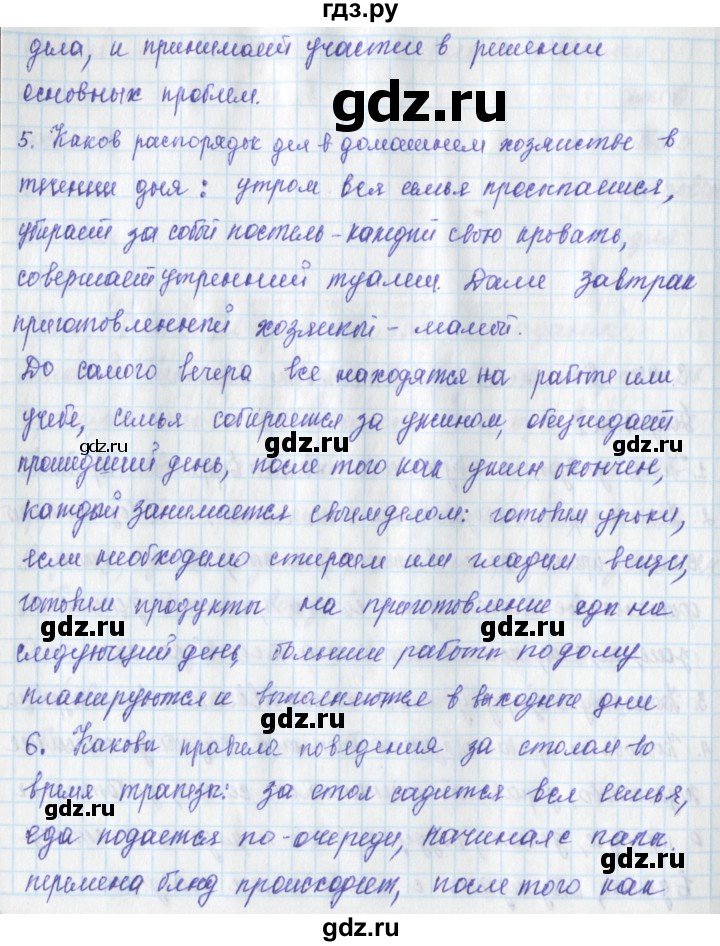 гдз.ру
дела, и принимает участие в решении
основных проблем.
gdz.ru
5. Каков распорядок дел в домашнем хозяйстве в
течении дня: утром вся семья просыпается,
убирает за собой постель - каждый свою кровать,
совершает утренний туалет. Далее завтрак
приготовленный хозяйкой - мамой.
gdz.ru
До самого вечера все находятся на работе или
учебе, семья собирается за ужином, обсуждает
gdz.ru
gdz.ru
gdz.ru
прошедший день, после того как ужин окончен,
каждый занимается своим делом: готовим уроки,
если необходимо стираем или гладим вещи,
готовим продукты на приготовление еды на
gdz.ru
gdz.ru
следующий день, большие работы по дому
планируются и выполняются в выходные дни
gdz.ru
6. Каковы правила поведения за столом во
время трапезы: за стол садится вся семья,
еда подается по-очереди, начиная с папы.
gdz.ru
gdz.ru
перемена блюд происходит, после того как
gdz.ru